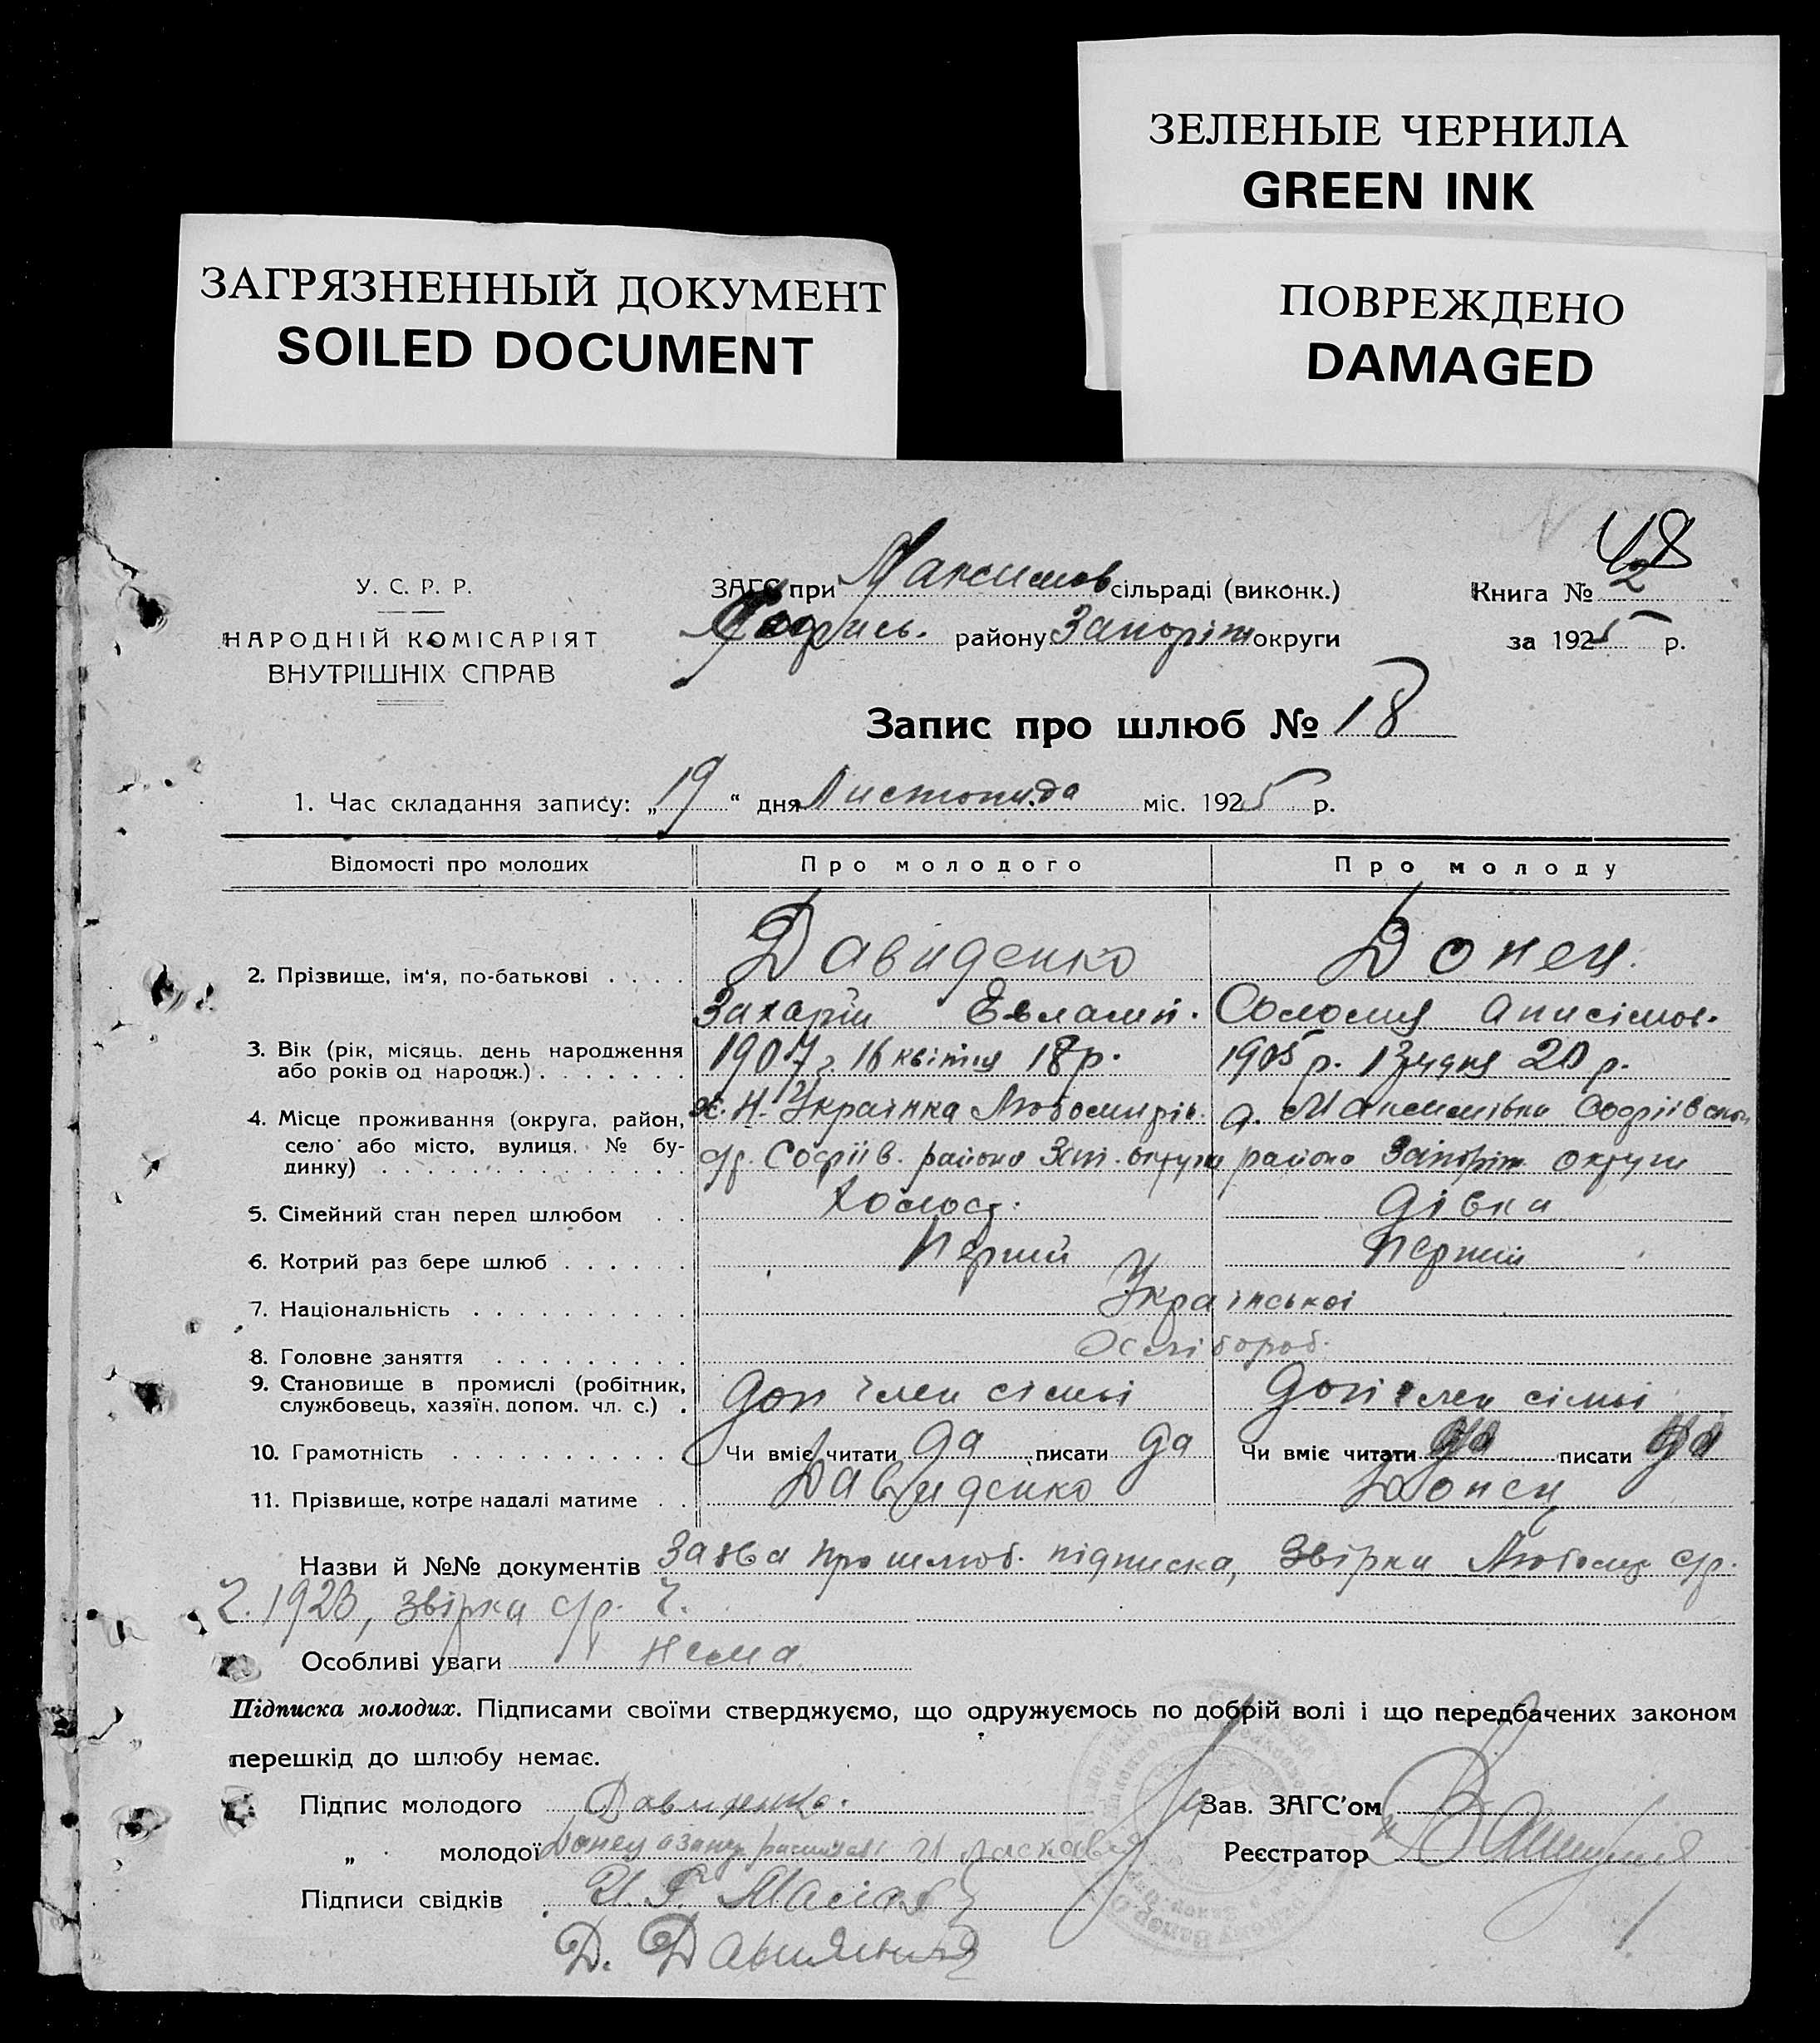 ЗЕЛЕНЫЕ ЧЕРНИЛА
GREEN INK
ЗАГРЯЗНЕННЫЙ ДОКУМЕНТ
SOILED DOCUMENT
ПОВРЕЖДЕНО
DAMAGED
48
У. С. Р. Р.
НАРОДНІЙ КОМІСАРІЯТ
ВНУТРІШНІХ СПРАВ
ЗАГС при Максимов сільраді (виконк.)
району Запоріж округи
Книга № 2
за 1925 р.
Запис про шлюб № 18
1. Час складання запису: „19“ дня Листопада міс. 1925 р.
Відомості про молодих Про молодого Про молоду
2. Прізвище, ім'я, по-батькові . . . . Давиденко Донец.
Захарій Евламп. Соломия Анисімов.
3. Вік (рік, місяць, день народження або років од народж.) . . . . . . . 1907 г. 16 квітня 18 р. 1905 р. 1 Грудня 20 р.
4. Місце проживання (округа, район, село або місто, вулиця, № будинку) . . . х. Н. Українка Любомирів. с. Максимівка Софіївськ
с/р. Софіїв. району Зап. округи району Запоріж округи
5. Сімейний стан перед шлюбом . . Холост. дівка
6. Котрий раз бере шлюб . . . . . . Перший Перший
7. Національність . . . . . . . . . Української
8. Головне заняття . . . . . . . . . Хлібороб.
9. Становище в промислі (робітник, службовець, хазяїн, допом. чл. с.) . доп член сімьі доп член сімьі
10. Грамотність . . . . . . . . . . Чи вміє читати да писати да Чи вміє читати да писати да
11. Прізвище, котре надалі матиме . . Давиденко Донец
Назви й №№ документів Заява про шлюб. підписка, Звірка Любом с/р.
Ч. 1923, звірка с/р. Ч.
Особливі уваги нема
Підписка молодих. Підписами своїми стверджуємо, що одружуємось по добрій волі і що передбачених законом
перешкід до шлюбу немає.
Підпис молодого Давиденко. Зав. ЗАГС'ом
„ молодої Донец Реєстратор
Підписи свідків
Д.